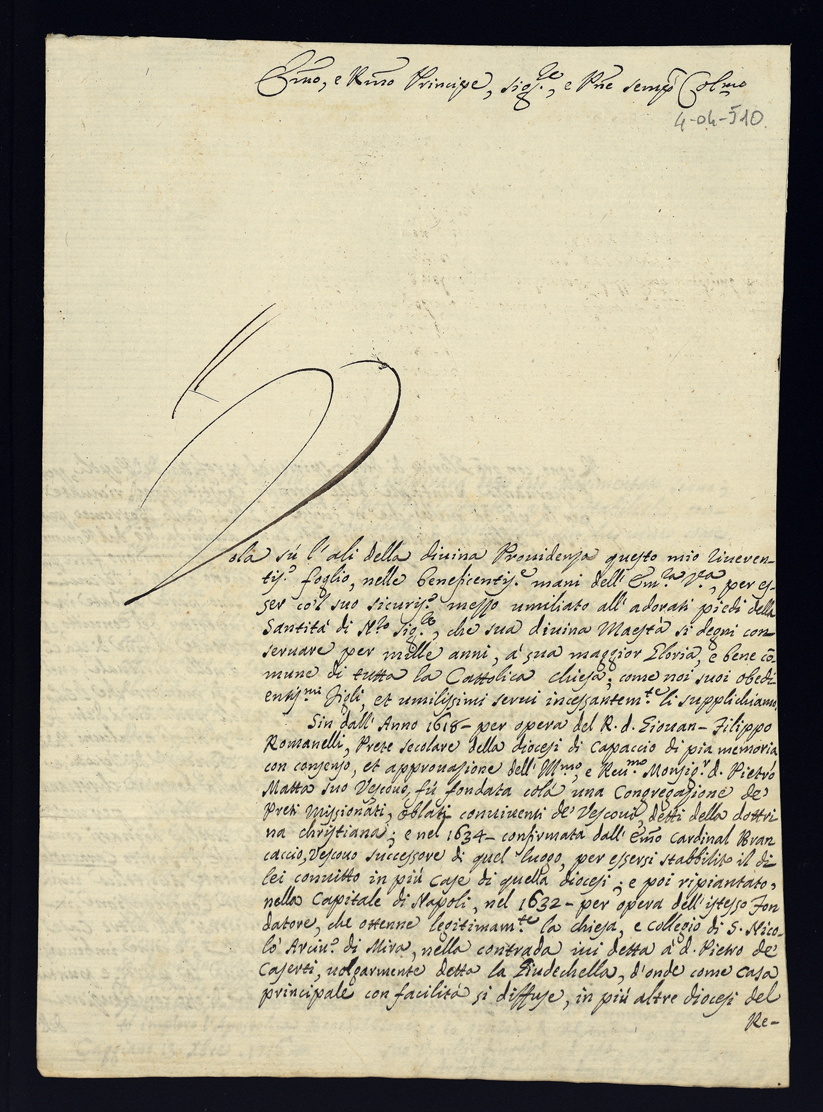 Emo, e Rmo Principe, sigre, e Pne semp Colmo
4-04-510.
Vola sù l'ali della divina Providenza questo mio riveren-
tiso foglio, nelle beneficentise mani dell'Emza Va, per es-
ser co'l suo sicuriso messo umiliato all'adorati piedi della
Santità di Nro Sigre, che sua divina Maestà si degni con
servare per mille anni, à sua maggior Gloria, e bene cō-
mune di tutta la Cattolica chiesa; come noi suoi obedi
entismi figli, et umilissimi servi incessantemte li supplichiamo,
Sin dall'Anno 1618- per opera del R. d. Giouan- Filippo
Romanelli, Prete secolare della diocesi di Capaccio di pia memoria
con consenso, et approuazione dell'Mmo, e Reumo Monsigr d. Pietro
Matta suo Vescouo, fù fondata colà una Congregazione de'
Preti Missionati, oblati conviventi de' Vescoui, detti della dottri
na christiana; e nel 1634- confirmata dall'Emo Cardinal Bran
caccio, Vescouo successore di quel luogo, per essersi stabbilito il di
lei convitto in più case di quella diocesi; e poi ripiantato,
nella Capitale di Napoli, nel 1632- per opera dell'istesso Fon
datore, che ottenne legitimamte la chiesa, e collegio di S. Nico-
lò Arcivo di Mira, nella contrada ivi detta à d. Pietro de'
Caserti, uolgarmente detta la Giudechella, d'onde come casa
principale con facilità si diffuse, in più altre diocesi del
Re-